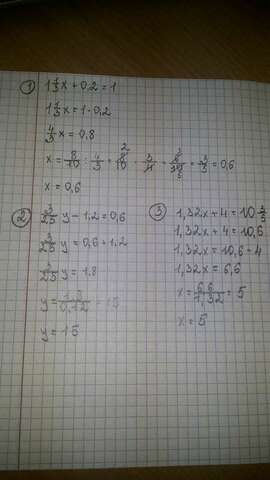 ① 1 1/3 x + 0,2 = 1
1 1/3 x = 1 - 0,2
4/3 x = 0,8
x = 8/10 : 4/3 = 8/10 · 3/4 = 6/10 = 3/5 = 0,6
x = 0,6
② 3/25 y - 1,2 = 0,6
3/25 y = 0,6 + 1,2
3/25 y = 1,8
y = 1,8/0,12 = 15
y = 15
③ 1,32x + 4 = 10 3/5
1,32x + 4 = 10,6
1,32x = 10,6 - 4
1,32x = 6,6
x = 6,6/1,32 = 5
x = 5